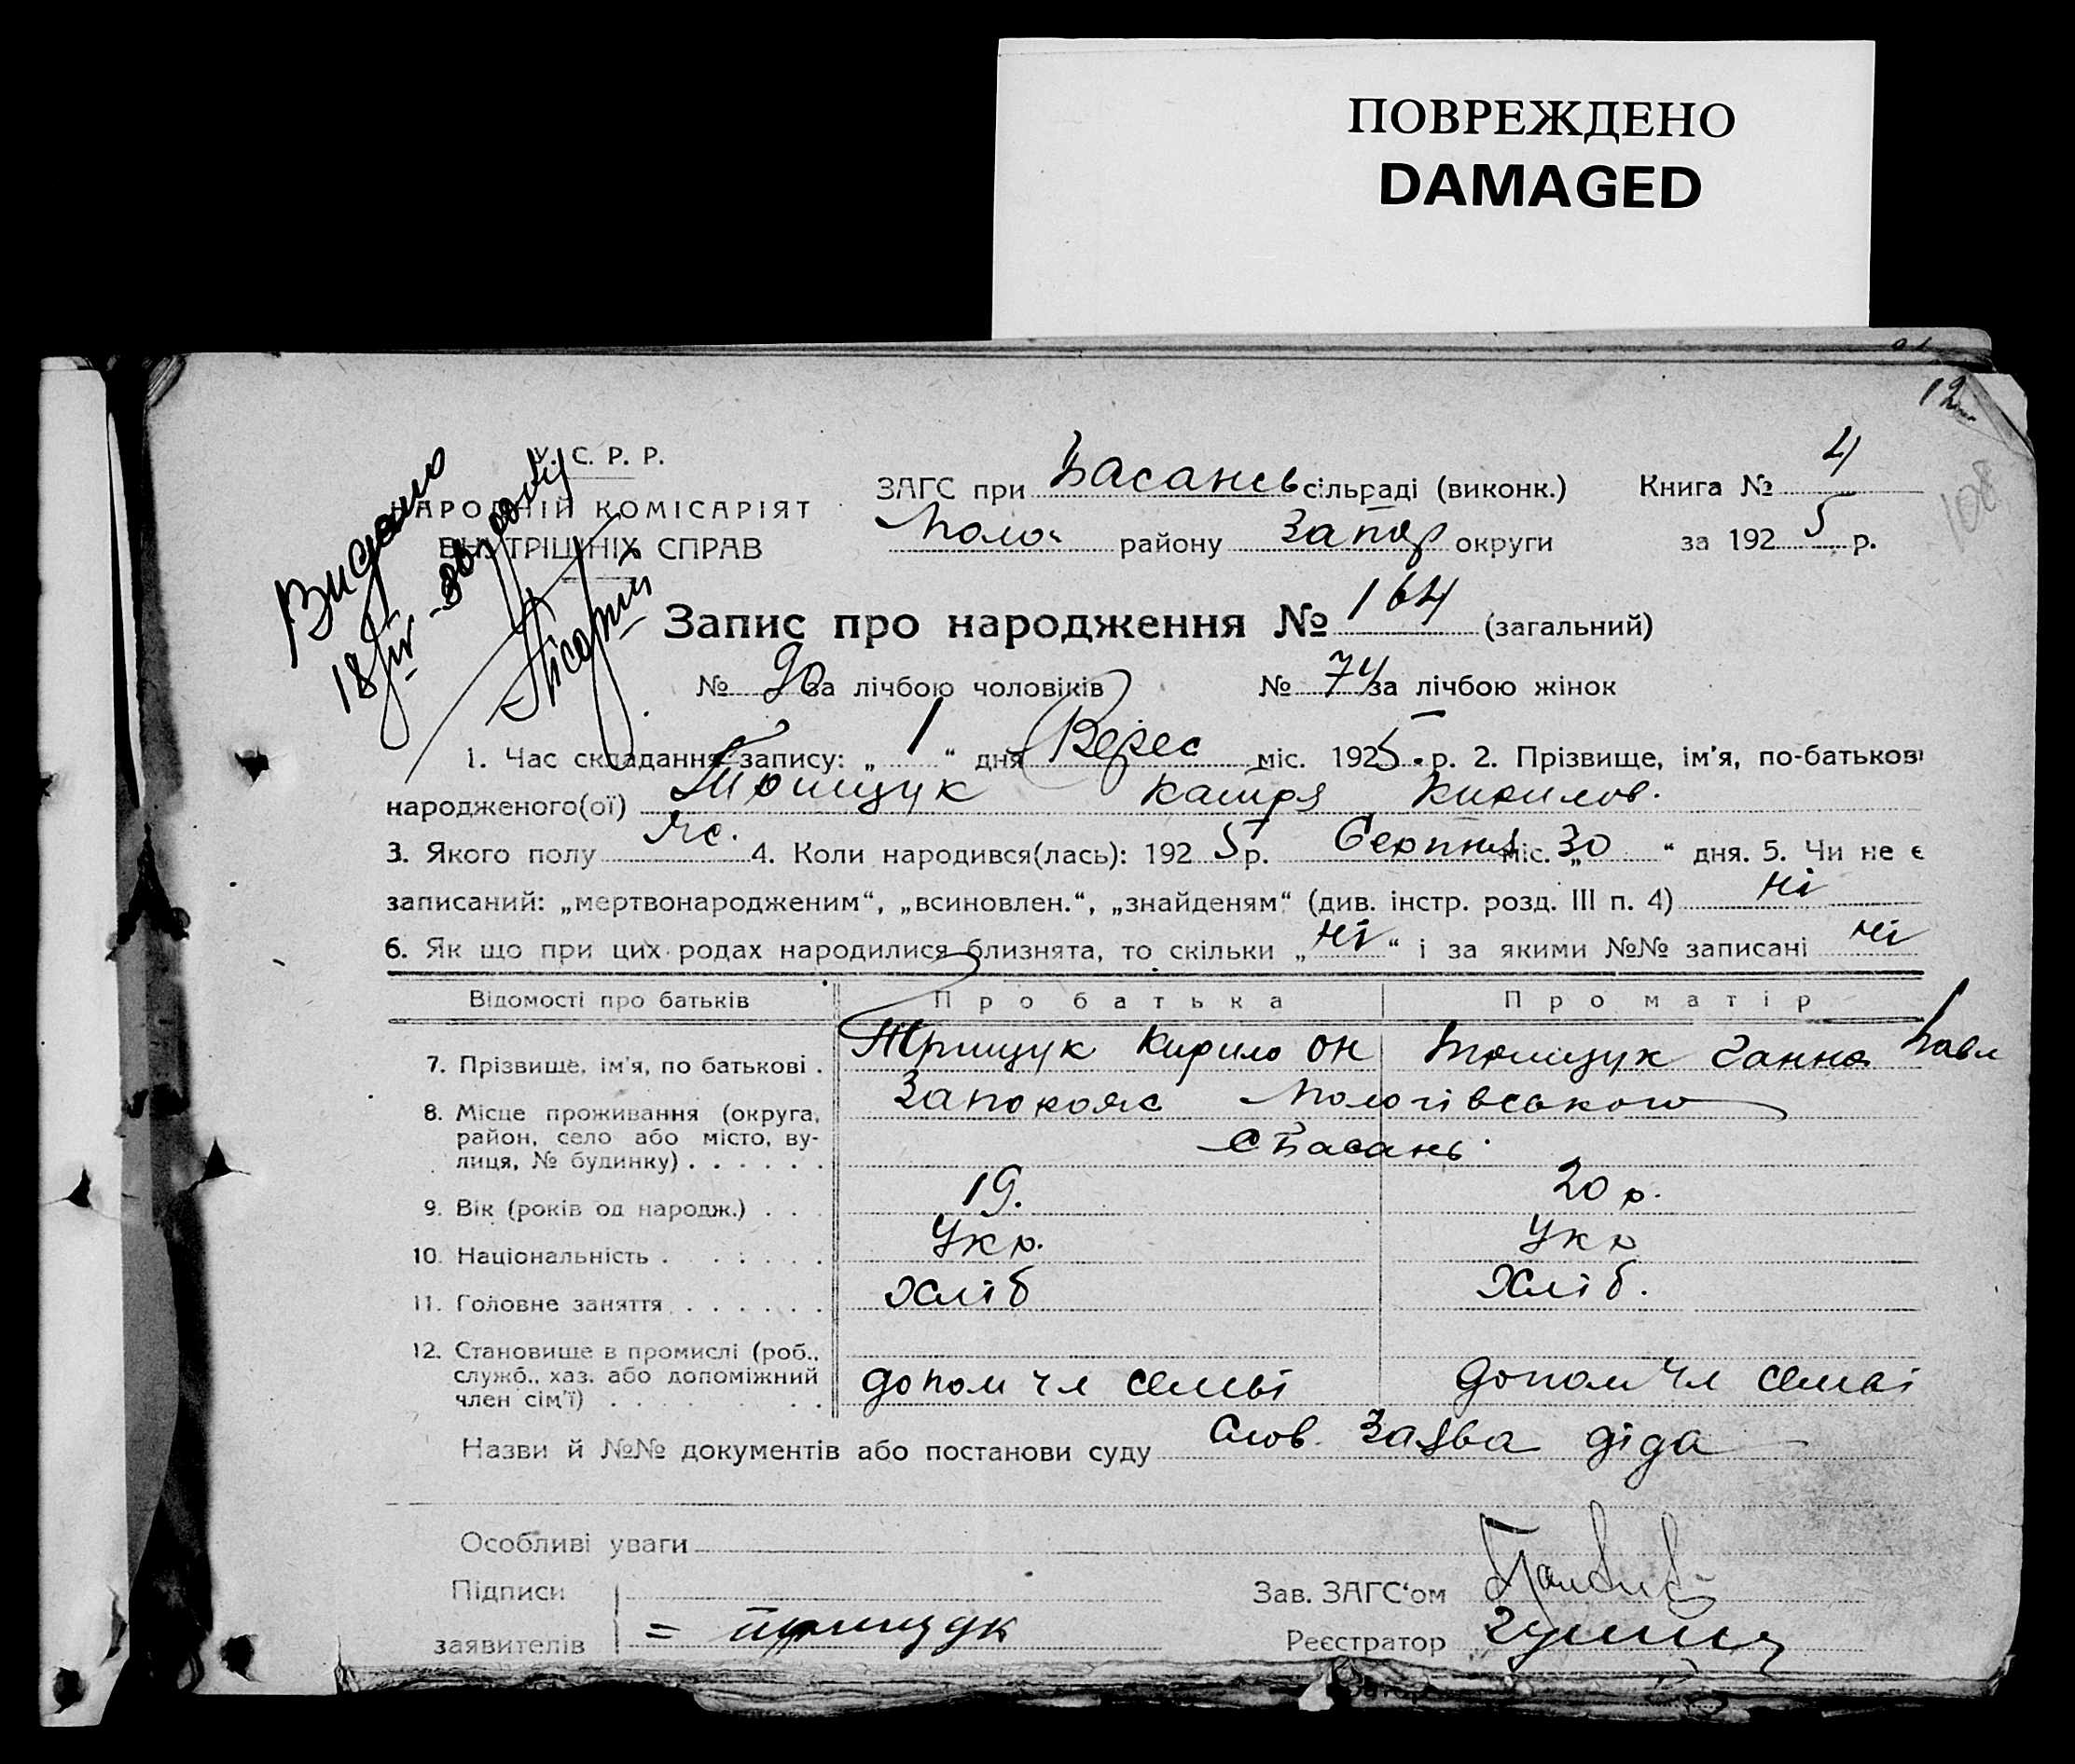 ПОВРЕЖДЕНО
DAMAGED
12
108
У. С. Р. Р.
НАРОДНІЙ КОМІСАРІЯТ
ВНУТРІШНІХ СПРАВ
Видано
18
ЗАГС при Басань сільраді (виконк.) Книга № 4
Полог району Запор округи за 192 5 р.
Запис про народження № 164 (загальний)
№ 90 за лічбою чоловіків № 74 за лічбою жінок
1. Час складання запису: „ 1 “ дня Верес міс. 1925 р. 2. Прізвище, ім'я, по-батькові
народженого(ої) Трищук Катря Кирилов.
3. Якого полу жс. 4. Коли народився(лась): 192 5 р. Серпня міс. „ 30 “ дня. 5. Чи не є
записаний: „мертвонародженим“, „всиновлен.“, „знайденям“ (див. інстр. розд. III п. 4) ні
6. Як що при цих родах народилися близнята, то скільки „ ні “ і за якими №№ записані ні
Відомості про батьків Про батька Про матір
7. Прізвище, ім'я, по батькові . Трищук Кирило Он Трищук Ганна Павл
8. Місце проживання (округа, район, село або місто, ву-
лиця, № будинку) . . . . . . Запорожс Пологівського
с Басань
9. Вік (років од народж.) . . . 19. 20 р.
10. Національність . . . . . . Укр. Укр
11. Головне заняття . . . . . . Хліб Хліб.
12. Становище в промислі (роб.,
служб., хаз. або допоміжний
член сім'ї) . . . . . . . допом чл семьї допом чл семьї
Назви й №№ документів або постанови суду Слов. Заява діда
Особливі уваги
Підписи
заявителів = трищук
Зав. ЗАГС‘ом
Реєстратор